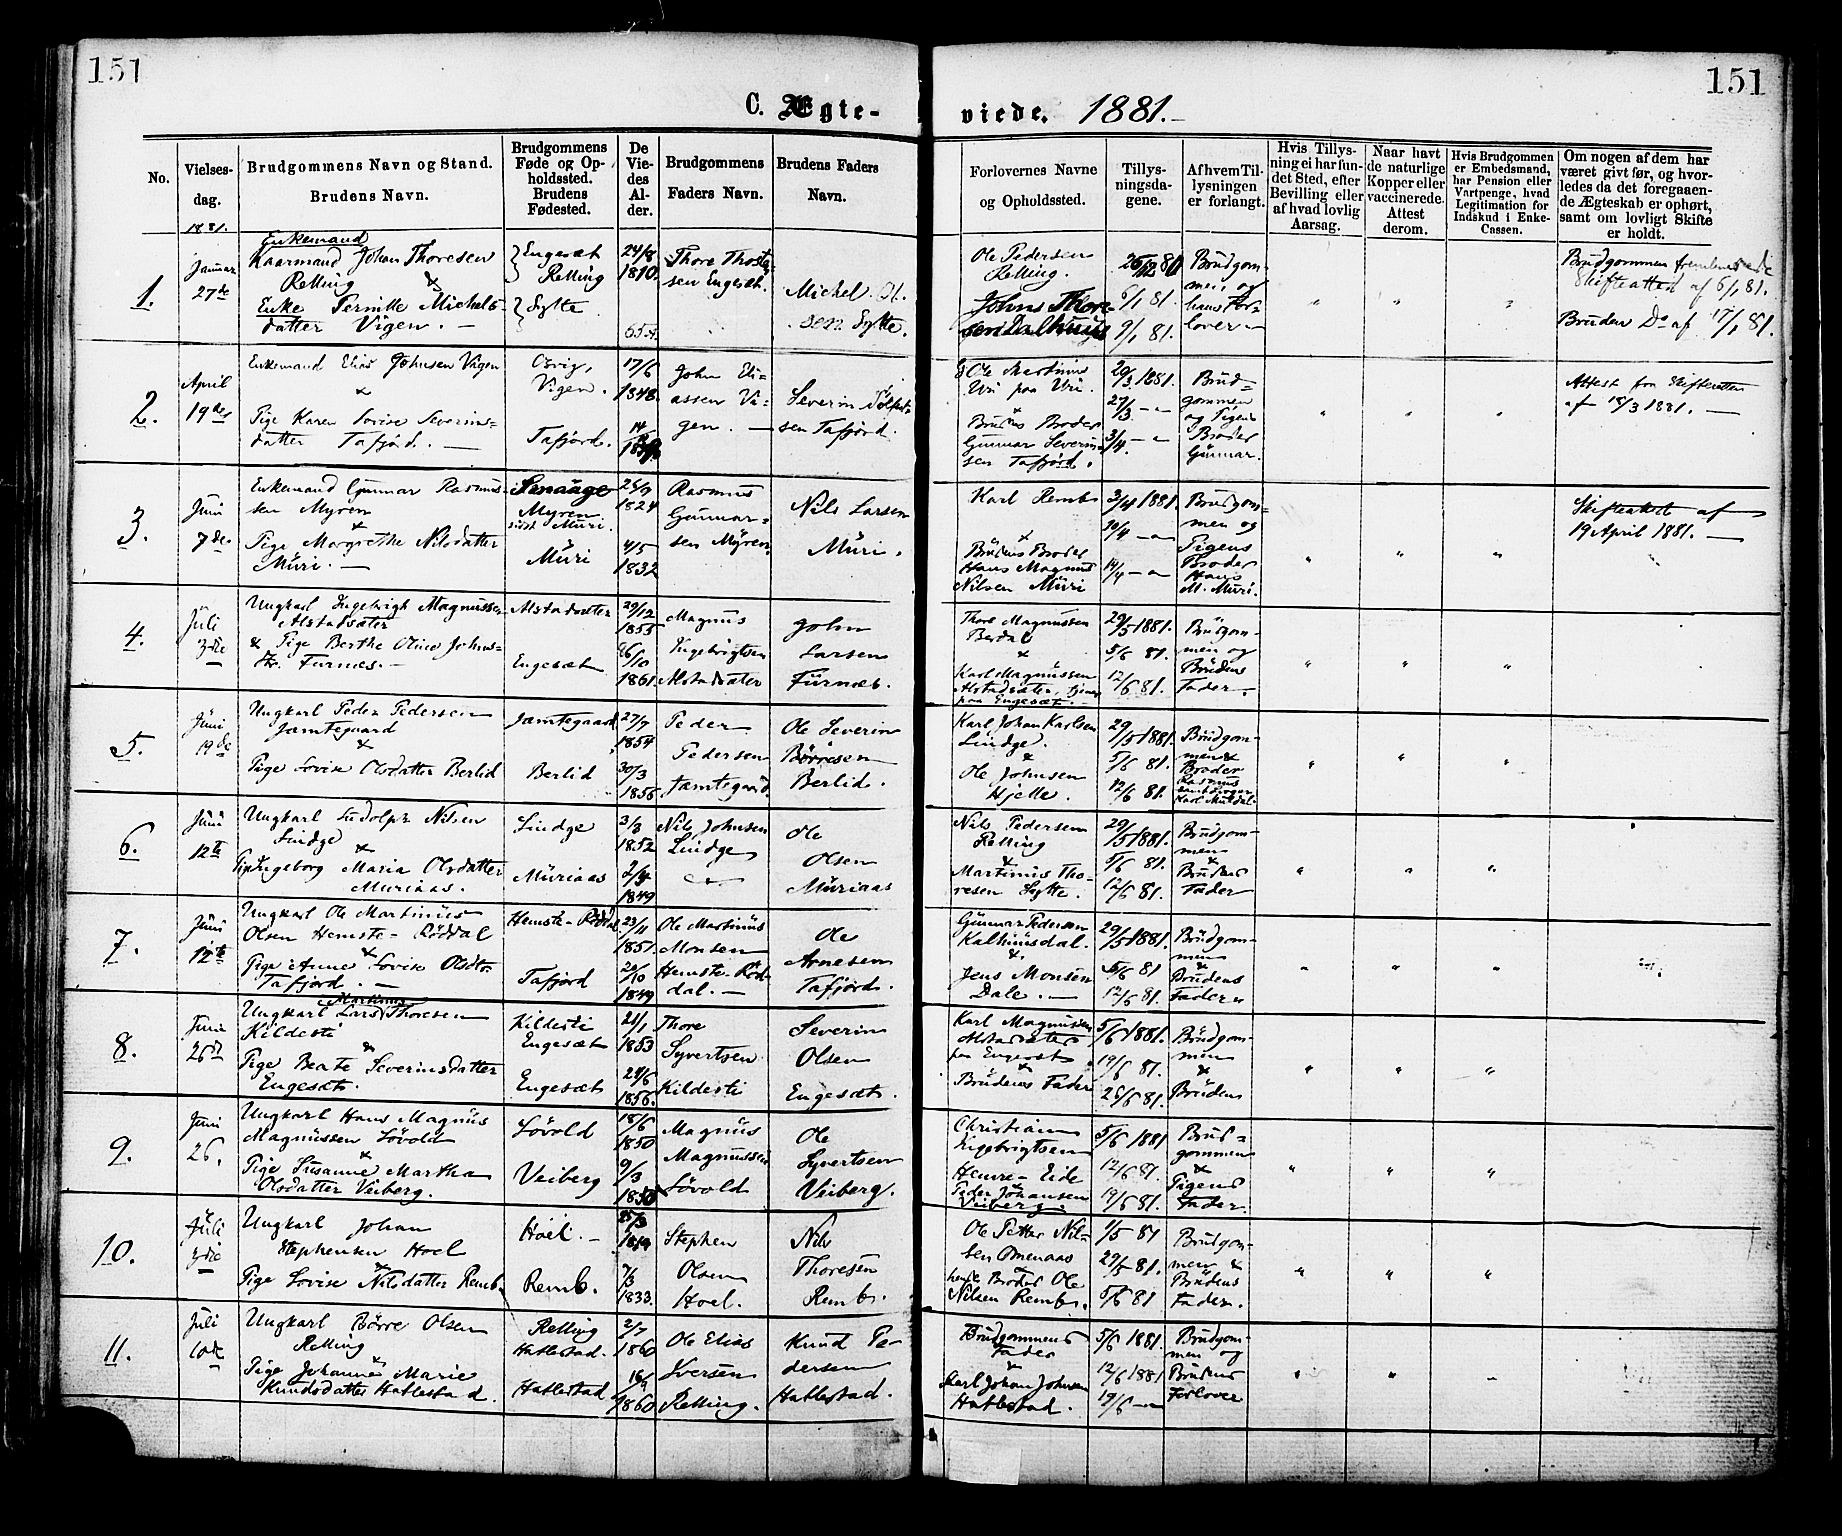 151
151
C. Ægte-
viede. 1881.-
No.
Vielses-
dag.
1881.
Brudgommens Navn og Stand.
Brudens Navn.
Brudgommens
Føde og Op-
holdssted.
Brudens
Fødested.
De
Vie-
des
Al-
der.
Brudgommens
Faders Navn.
Brudens Faders
Navn.
Forlovernes Navne
og Opholdssted.
Tillys-
ningsda-
gene.
Af hvem Til-
lysningen
er forlangt.
Hvis Tillys-
ning ei har fun-
det Sted, efter
Bevilling eller
af hvad lovlig
Aarsag.
Naar havt
de naturlige
Kopper eller
vaccinerede.
Attest
derom.
Hvis Brudgommen
er Embedsmand,
har Pension eller
Vartpenge, hvad
Legitimation for
Indskud i Enke-
Cassen.
Om nogen af dem har
været givt før, og hvor-
ledes da det foregaaen-
de Ægteskab er ophørt,
samt om lovligt Skifte
er holdt.
1.
Januar
27de
Enkemand
Kaarmand Johan Thoresen
Relling &
Enke Pernille Michels-
datter Vigen. -
Engesæt
Relling
Sylte
24/8
1810.
65
Thore Thoste-
sen Engesæt.
Michel Ol.
sen Sylte.
Ole Pedersen
Relling.
Johns Thore-
sen
26/12 80
6/1 81.
9/1 81.
Brudgom-
men, og
hans For-
lover
" " "
Brudgommen
Skifteattest af 6/1 81.
Bruden Do af 17/1 81.
2.
April
19de
Enkemand Elias Johnsen Vigen
&
Pige Karen Lovise Severins-
datter Tafjord. -
Vigen.
Tafjord.
17/6
1848.
14
John Eli-
assen Vi-
gen. -
Severin
sen Tafjord.
Ole Martinus
Uri paa Uri.
&
Brudens Broder
Gunnar Severin-
sen Tafjord.
20/3 1881.
27/3 - "
3/4. - "
Brud-
gommen
og Pigens
Broder
Gunnar.
" " "
Attest fra Skifteretten
af 18/3 1881. -
3.
Juni
7de
Enkemand Gunnar Rasmus-
sen Myren
&
Pige Margrethe Nilsdatter
Muri. -
Myren
sidst Muri.
Muri
1824
4/5
1832
Rasmus
Gunnar-
sen Myren
Nils Larsen
Muri.
Karl Remb
&
Brudens Broder
Hans Magnus
Nilsen Muri
3/4 1881.
10/4 - "
14/4 - "
Brudgom-
men og
Pigens
Broder
Hans
M. Muri.
" " "
Skifteattest af
19 April 1881. -
4.
Juli
3die
Ungkarl Ingebrigt Magnussen
Alstadsæter
& Pige Berthe Oline Johns-
dtr. Furnæs. -
Alstadsæter
Engesæt
29/12
1855
26/10
1861.
Magnus
Ingebrigtsen
Alstadsæter
John
Larsen
Furnæs.
Thore Magnussen
Berdal
&
Karl Magnussen
Alstadsæter, tjener
paa Engesæt. -
29/5 1881.
5/6 81.
12/6 81.
Brudgom-
men og
Brudens
Fader -
" " "
5.
Juni
19de
Ungkarl Peder Pedersen
Jamtegaard
&
Pige Lovise Olsdatter Berlid
Jamtegaard
Berlid
27/7
1854
30/3
1856
Peder
Pedersen
Jamtegaard.
Ole Severin
Børresen
Berlid.
Karl Johan Karlsen
Lindge.
&
Ole Johnsen
Hjelle.
29/5 1881.
5/6 81.
12/6 81.
Brudgom-
men &
Broder
Rasmus
" " "
6.
Juni
12te
Ungkarl Ludolph Nilsen
Lindge
&
Pige Ingeborg Maria Olsdatter
Muriaas.
Lindge
Muriaas
3/3
1852
1849
Nils Johnsen
Lindge
Ole
Olsen
Muriaas
Nils Pedersen
Relling
&
Martinus Tho-
resen Sylte.
29/5 1881.
5/6 81.
12/6 81.
Brudgom-
men
&
Brudens
Fader
" " "
7.
Juni
12te
Ungkarl Ole Martinus
Olsen Hemste-Røddal
&
Pige Anne Lovise Olsdtr
Tafjord. -
Hemste-Røddal
Tafjord
23/11
1851.
20/10
1849
Ole Martinus
Monsen
Hemste-Rød-
dal. -
Ole
Arnesen
Tafjord.
Gunnar Pedersen
Kalhuusdal.
&
Jens Monsen
Dale. -
29/5 1881.
5/6 81
12/6 81.
Brudgom-
men
&
Brudens
Fader
" " "
8.
Junii
26d
Martinus
Ungkarl Lars Thoresen
Kildesti
&
Pige Beate Severinsdatter
Engesæt.
Kildesti
Engesæt
Engesæt
21/1
1853
28/6
1856.
Thore
Syvertsen
Kildesti
Severin
Olsen
Engesæt.
Karl Magnussen
Alstadsæter
paa Engesæt
&
Brudens Fader
5/6 1881.
19/6 81.
26/6 81.
Brudgom-
men
&
Brudens
" " "
9.
Juni
26.
Ungkarl Hans Magnus
Magnussen Løvold
&
Pige Susanne Martha
Olsdatter Veiberg.
Løvold
Veiberg
18/6
1850
9/3
1850
Magnus
Magnussen
Løvold
Ole
Syvertsen
Veiberg.
Christian
Engebrigtsen
Hemre-Eide
&
Peder Johansen
Veiberg.
5/6 1881
12/6 81.
19/6 81.
Brud-
gommen
&
Pigens
Fader.
" " "
10.
Juli
3die
Ungkarl Johan
Stephensen Hoel
&
Pige Lovise Nilsdatter Remb.
Hoel. -
Remb.
7/3
1833.
Stephen
Olsen
Hoel.
Nils
Thoresen
Remb.
Ole Petter Nil-
sen Omenaas
&
hendes Broder Ole
Nilsen Remb.
1/5 81
29/5 81.
5/6 81
Brudgom-
men &
Brudens
Fader.
" " "
11.
Juli
10de
Ungkarl Børre Olsen
Relling
&
Pige Johanne Marie
Knudsdatter Hatlestad.
Relling
Hatlestad.
Hatlestad
2/7
1860
16/9
1860
Ole Elias
Iversen
Relling.
Knud Pe-
dersen
Hatlestad.
Brudgommens
Fader
&
Karl Johan Johnsen
Hatlestad.
5/6 1881.
12/6 1881
19/6 - "
Brudgom-
men og
Brudens
Forlover
" " "